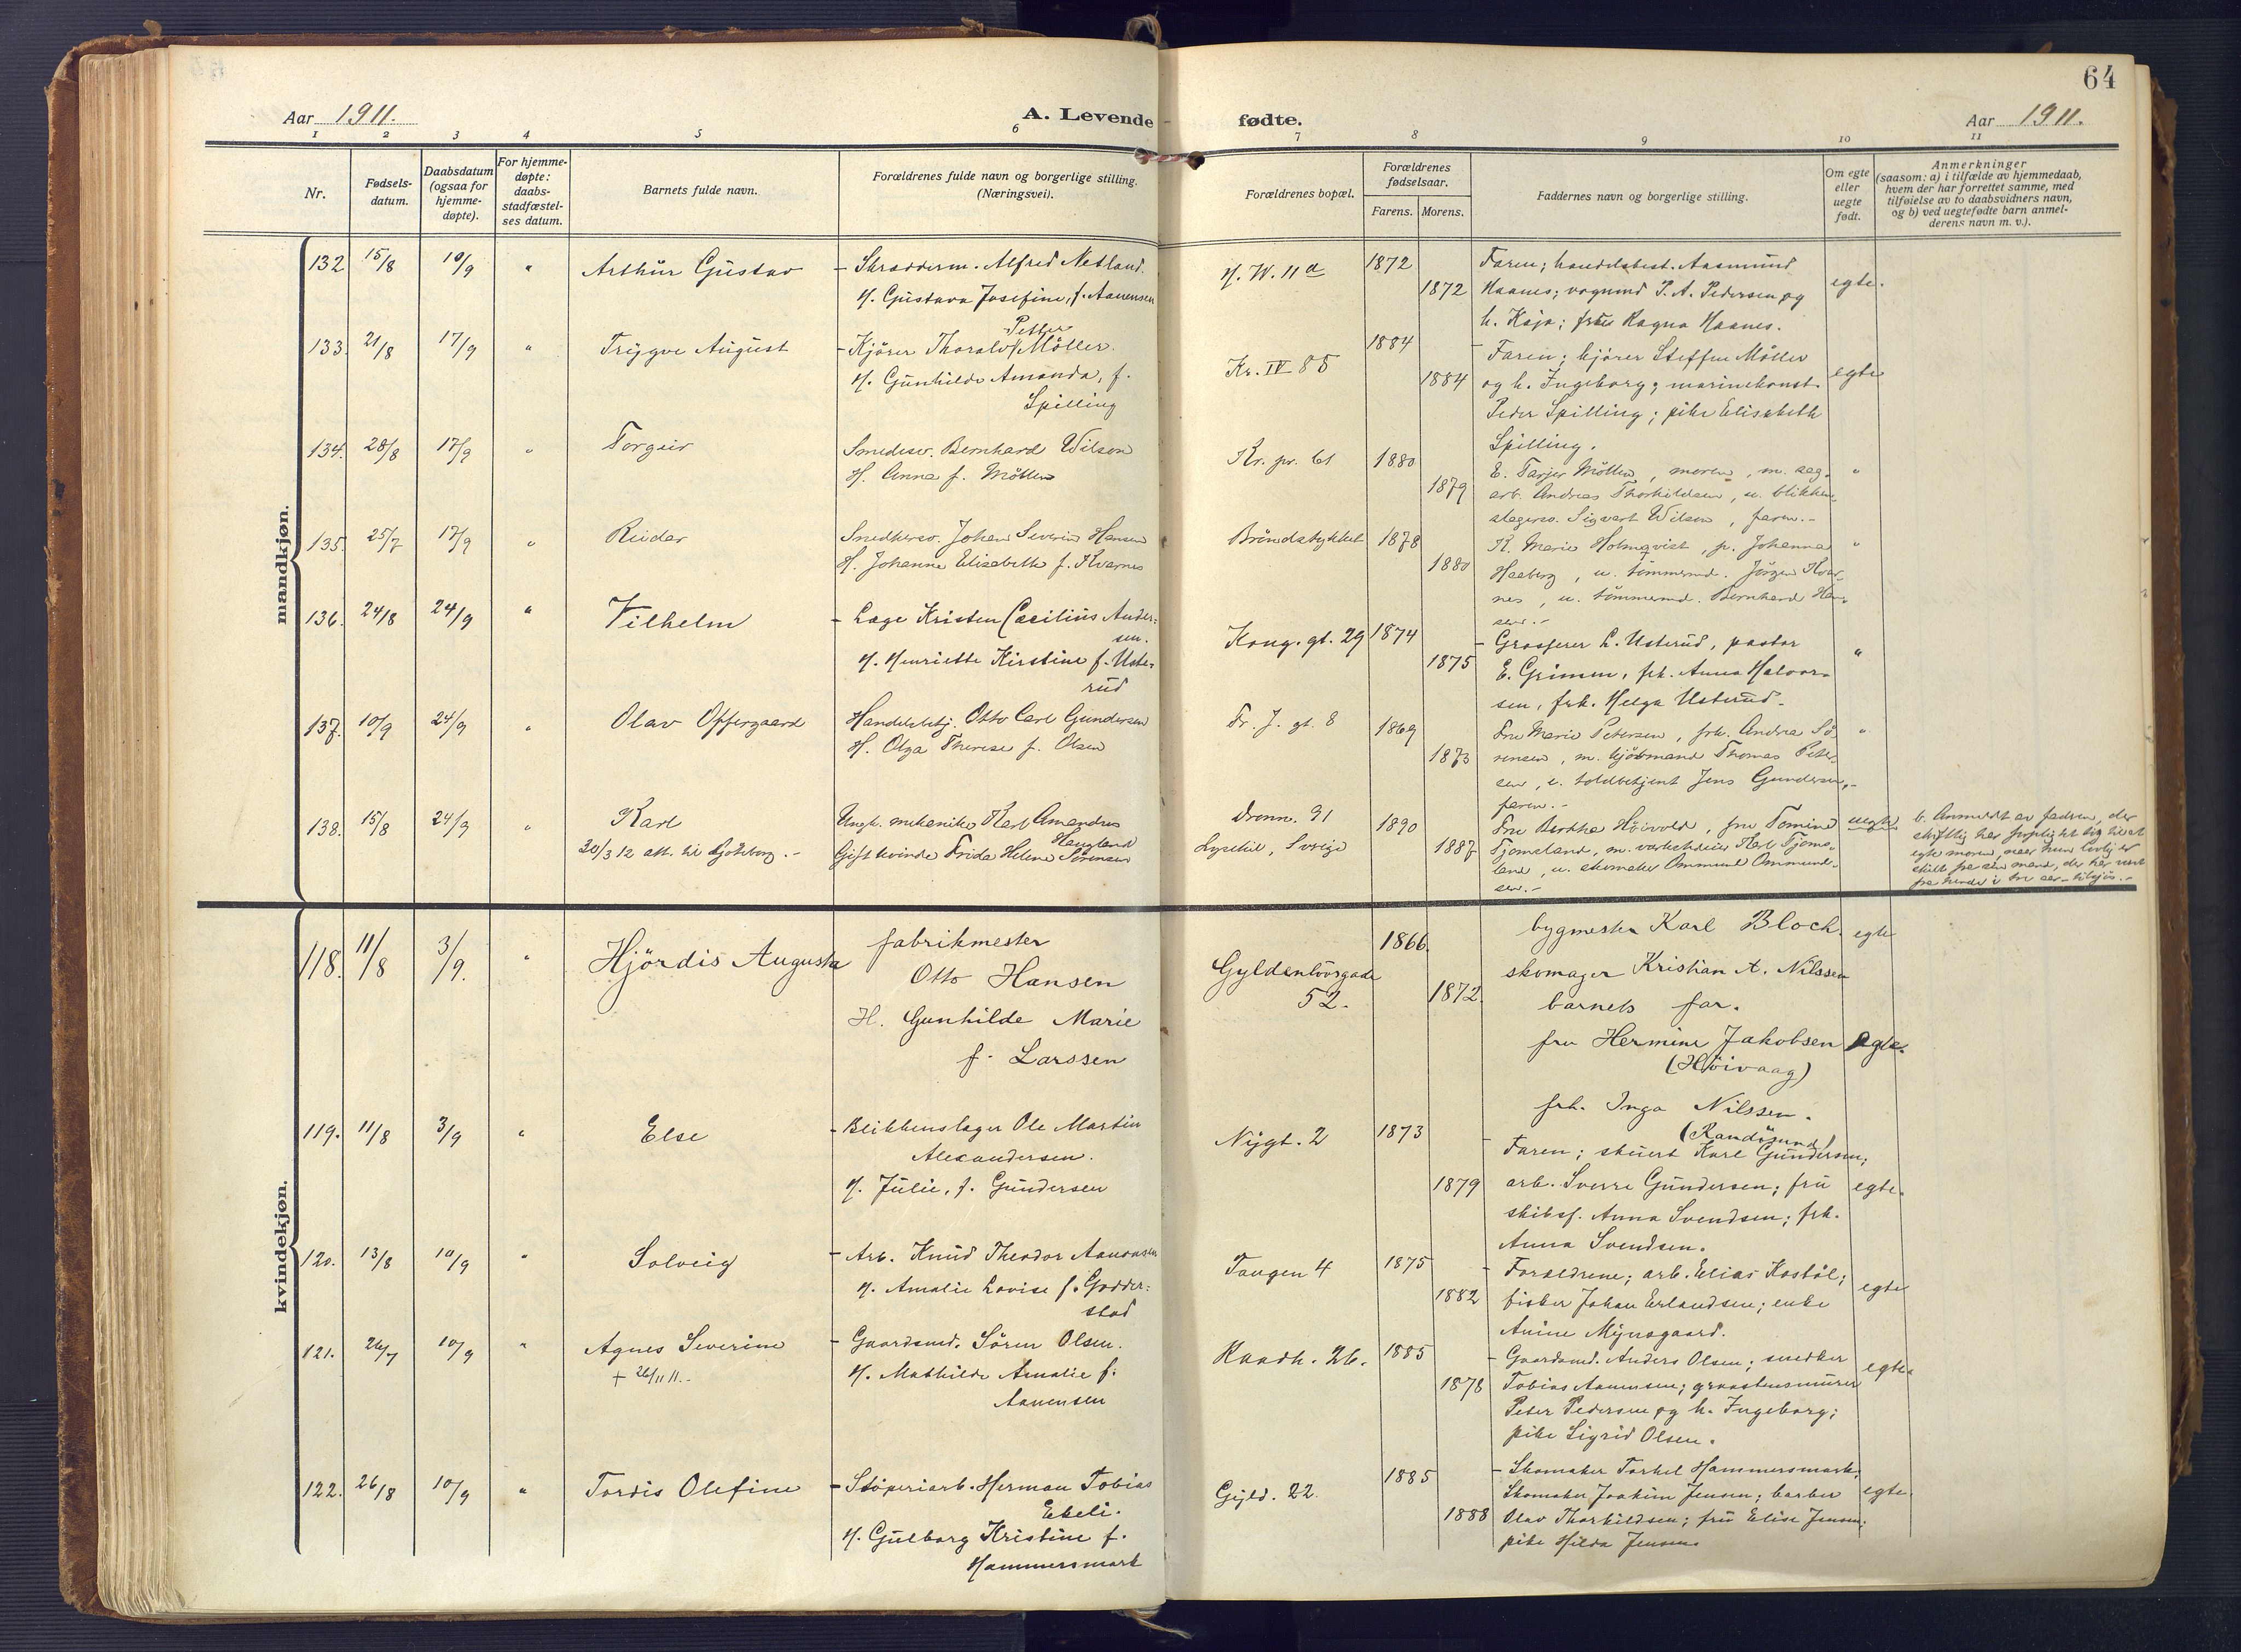 64
Aar 1911.
A. Levende fødte.
Aar 1911.
1 2 3 4 5 6 7 8 9 10 11
Nr.
Fødsels-
datum.
Daabsdatum
(ogsaa for
hjemme-
døpte).
For hjemme-
døpte:
daabs-
stadfæstel-
ses datum.
Barnets fulde navn.
Forældrenes fulde navn og borgerlige stilling.
(Næringsvei).
Forældrenes bopæl.
Forældrenes
fødselsaar.
Farens. Morens.
Faddernes navn og borgerlige stilling.
Om egte
eller
uegte
født.
Anmerkninger
(saasom: a) i tilfælde av hjemmedaab,
hvem der har forrettet samme, med
tilføielse av to daabsvidners navn,
og b) ved uegtefødte barn anmel-
derens navn m. v.).
mandkjøn.
132 15/8 10/9 " Arthur Gustav
- Skrædderm. Alfred Netland.
H. Gustava Josefine, f. Aanensen
H. W. 11a
1872
1872
Faren; handelsbest. Aasmund
Haanes; vognmd P. A. Pedersen og
h. Kaja; frøk. Ragna Haanes.
egte.
133. 21/8 17/9 " Trygve August
Petter
- Kjører Thoralv Møller.
H. Gunhilde Amanda, f.
Spilling
Kr. IV 85
1884
1884
- Faren; kjører Steffen Møller
og h. Ingeborg; marinekonst.
Peder Spilling; pike Elisabeth
Spilling.
egte
134. 28/8 17/9 " Torgeir
Smedesv. Bernhard Wilson
H. Anna f. Møller
Kr. pr. 61
1880
1879
E. Tarjer Møller, moren, m. sag-
arb. Andreas Thorkildsen, u. blikken-
slagersv. Sigvart Wilson, faren.-
"
135. 25/7 17/9 " Reidar
Snedkersv. Johan Severin Hansen
H. Johanne Elisabeth f. Kvarnes
Brøndstykket
1878
1880
K. Marie Holmqvist, p. Johanna
Haaberg, u. tømmermd. Jørgen Kvar-
nes, u. tømmermd. Bernhard Han-
sen.-
"
136. 24/8 24/9 " Vilhelm
- Læge Kristen Cæcilius Ander-
sen.
H. Henriette Kirstine f. Uste-
rud
Kong. gt. 29
1874
1875
- Grosserer L. Usterud, pastor
E. Grimsen, frk. Anna Halvor-
sen, frk. Helga Usterud.
"
137. 10/9 24/9 " Olav Offergaard
Handelsbetj. Otto Carl Gundersen
H. Olga Therese f. Olsen
Fr. J. gt. 8
1869
1873
Fru Marie Petersen, frk. Andrea Sø-
rensen, m. kjøbmand Thomas Peter-
sen, u. toldbetjent Jens Gundersen,
faren.-
"
138. 15/8 24/9 " Karl
30/3 12 att. til Gøteborg.-
Ungk. mekaniker Karl Amandus
Haugland
Gift kvinde Frida Helene Sørensen
Dronn. 31
Lysekil, Sverige
1890
1887
Fru Berthe Høivold, fru Tomine
Tjomsland, m. værkeier Karl Tjoms-
land, u. skomaker Ommund Ommund-
sen.-
uegte
b. Anmeldt av faderen, der
skriftlig har forpligtet sig til at
egte moren, naar hun lovlig er
skilt fra sin mand, der har været
fra hende i tre aar
kvindekjøn.
118. 11/8 3/9. " Hjördis Augusta
fabrikmester
Otto Hansen
H. Gunhilde Marie
f. Larssen
Gyldenlövsgade
52.
1866.
1872.
bygmester Karl Bloch.
skomager Kristian A. Nilssen
barnets far.
fru Hermine Jakobsen
(Høivaag)
frk. Inga Nilssen.
(Randøsund)
egte
egte.
119. 11/8 3/9 " Else
- Blikkenslager Ole Martin
Alexandersen.
H. Julie, f. Gundersen
Nygt. 2
1873
1879
- Faren; stuert Karl Gundersen;
arb. Sverre Gundersen; fru
skibsf. Anna Svendsen; frk.
Anna Svendsen.
egte.
120. 13/8 10/9 " Solveig
- Arb. Knud Theodor Aanonsen
H. Amalie Lovise f. Godder-
stad
Tangen 4
1875
1882
- Forældrene; arb. Elias Kostøl;
fisker Johan Erlandsen; enke
Anine Myrsgaard.
egte
121. 26/7 10/9 " Agnes Severine
+ 26/11 11.-
- Gaardsmd. Sören Olsen.
H. Mathilde Amalie f.
Aanensen
Raadh. 26.
1885
1878
- Gaardsmd. Anders Olsen; snedker
Tobias Aanensen; graastensmurer
Peter Pedersen og h. Ingeborg;
pike Sigrid Olsen.
egte.
122. 26/8 10/9 " Tordis Olefine
- Støperiarb. Herman Tobias
Ekeli.
H. Gulborg Kristine f.
Hammersmark
Gyld. 22.
1885
1888
- Skomaker Torkel Hammersmark;
Skomaker Joakim Jensen; barber
Olav Thorkildsen; fru Elise Jensen;
pike Hilda Jensen.
egte.